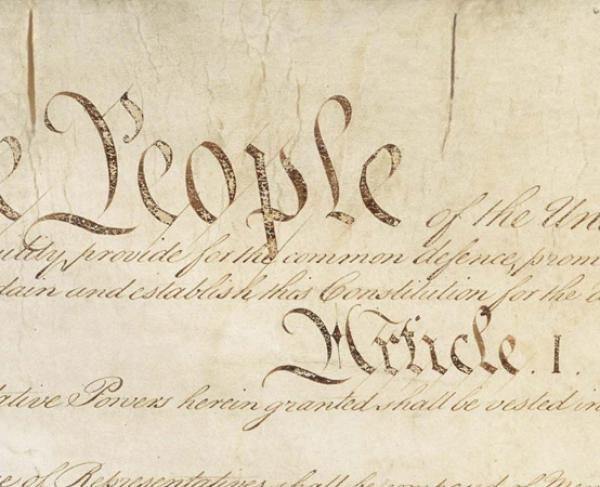 e People of the Un
uility, provide for the common defence, prom
dain and establish this Constitution for the U
Article. I.
lative Powers herein granted shall be vested in
e of Representatives shall be composed of Mem